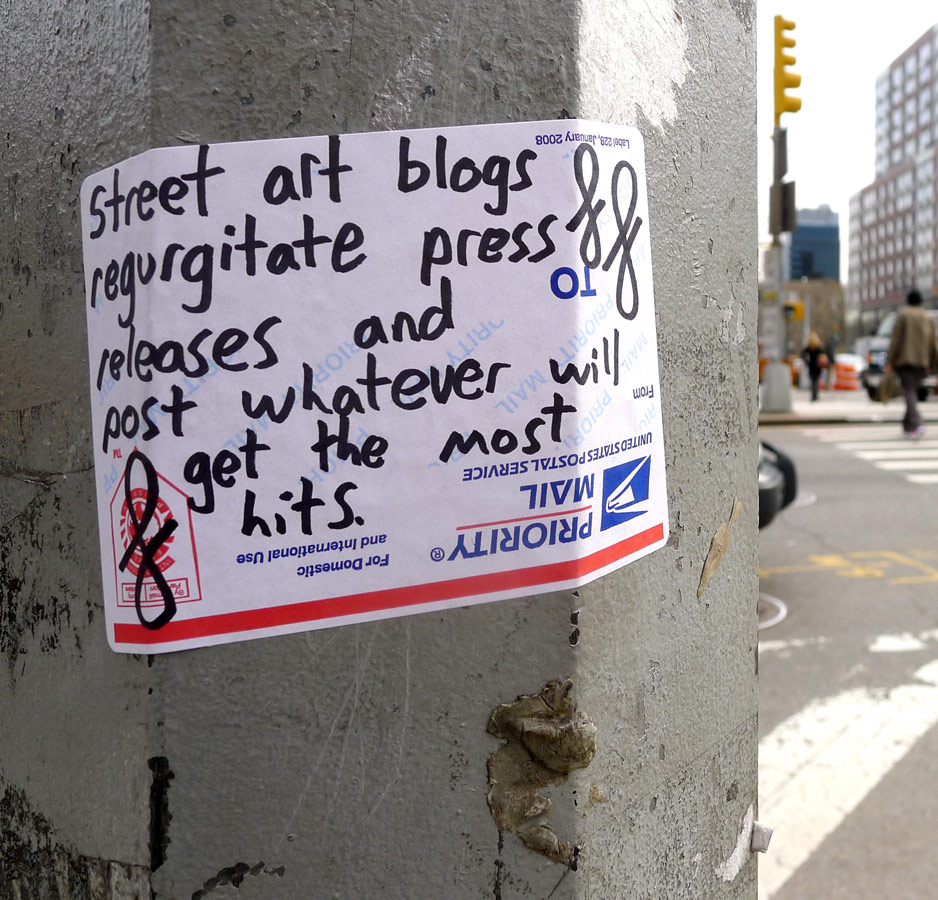 street art blogs
regurgitate press
releases and
post whatever will
get the most
hits.
Label 228, January 2008
TO
From
UNITED STATES POSTAL SERVICE
PRIORITY
MAIL
®
For Domestic
and International Use
TM
PRIORITY MAIL